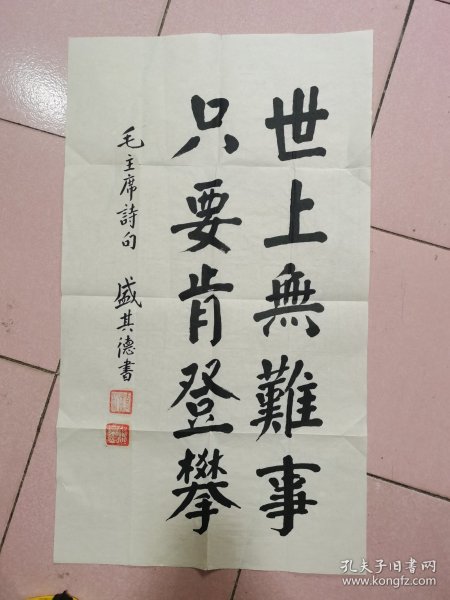 世上無難事
只要肯登攀
毛主席詩句 盛其德書
孔夫子旧书网
www.kongfz.com